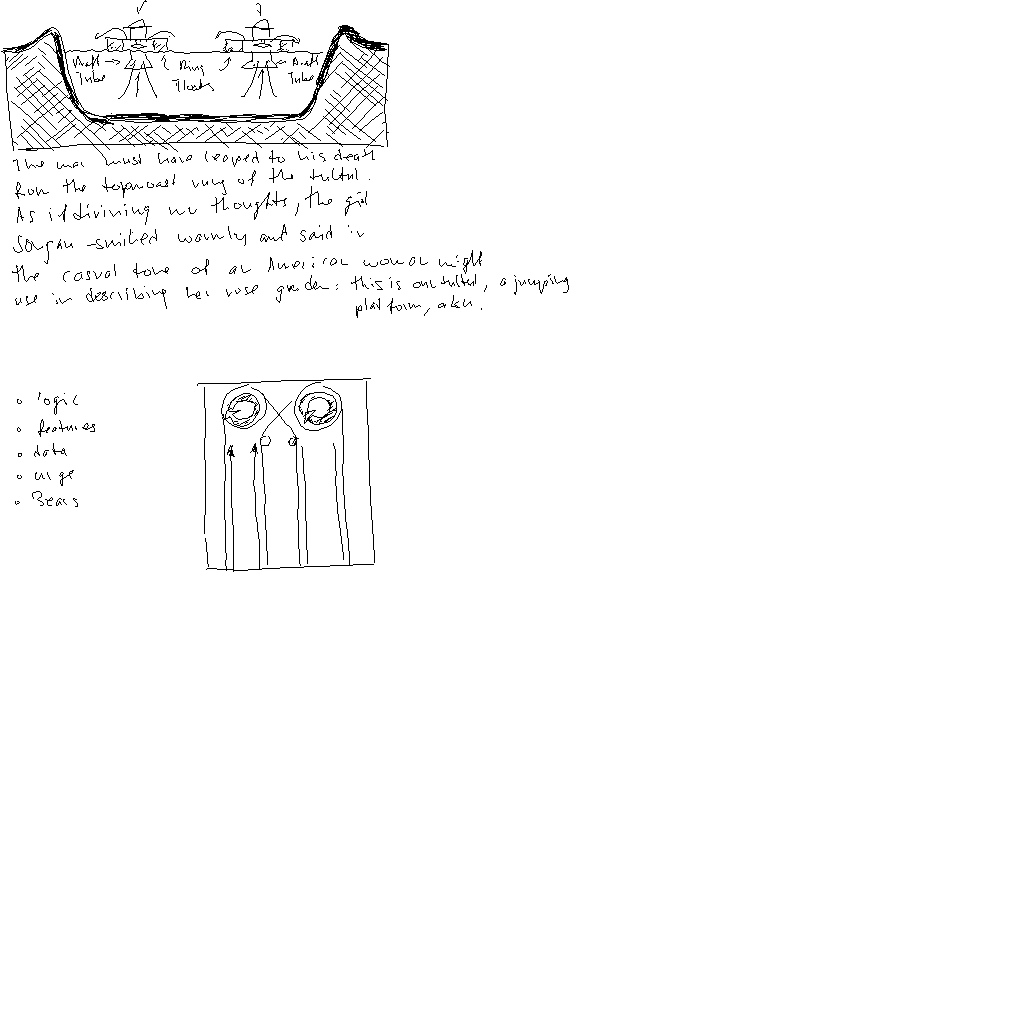 Draft Tube
Ring Floats
Draft Tube
The man must have leaped to his death
from the topmost rung of the tultul.
As if divining my thoughts, the girl
Songan smiled warmly and said in
the casual tone of an American woman might
use in describing her rose garden: this is our tultul, a jumping
platform,
logic
features
data
urge
Bears